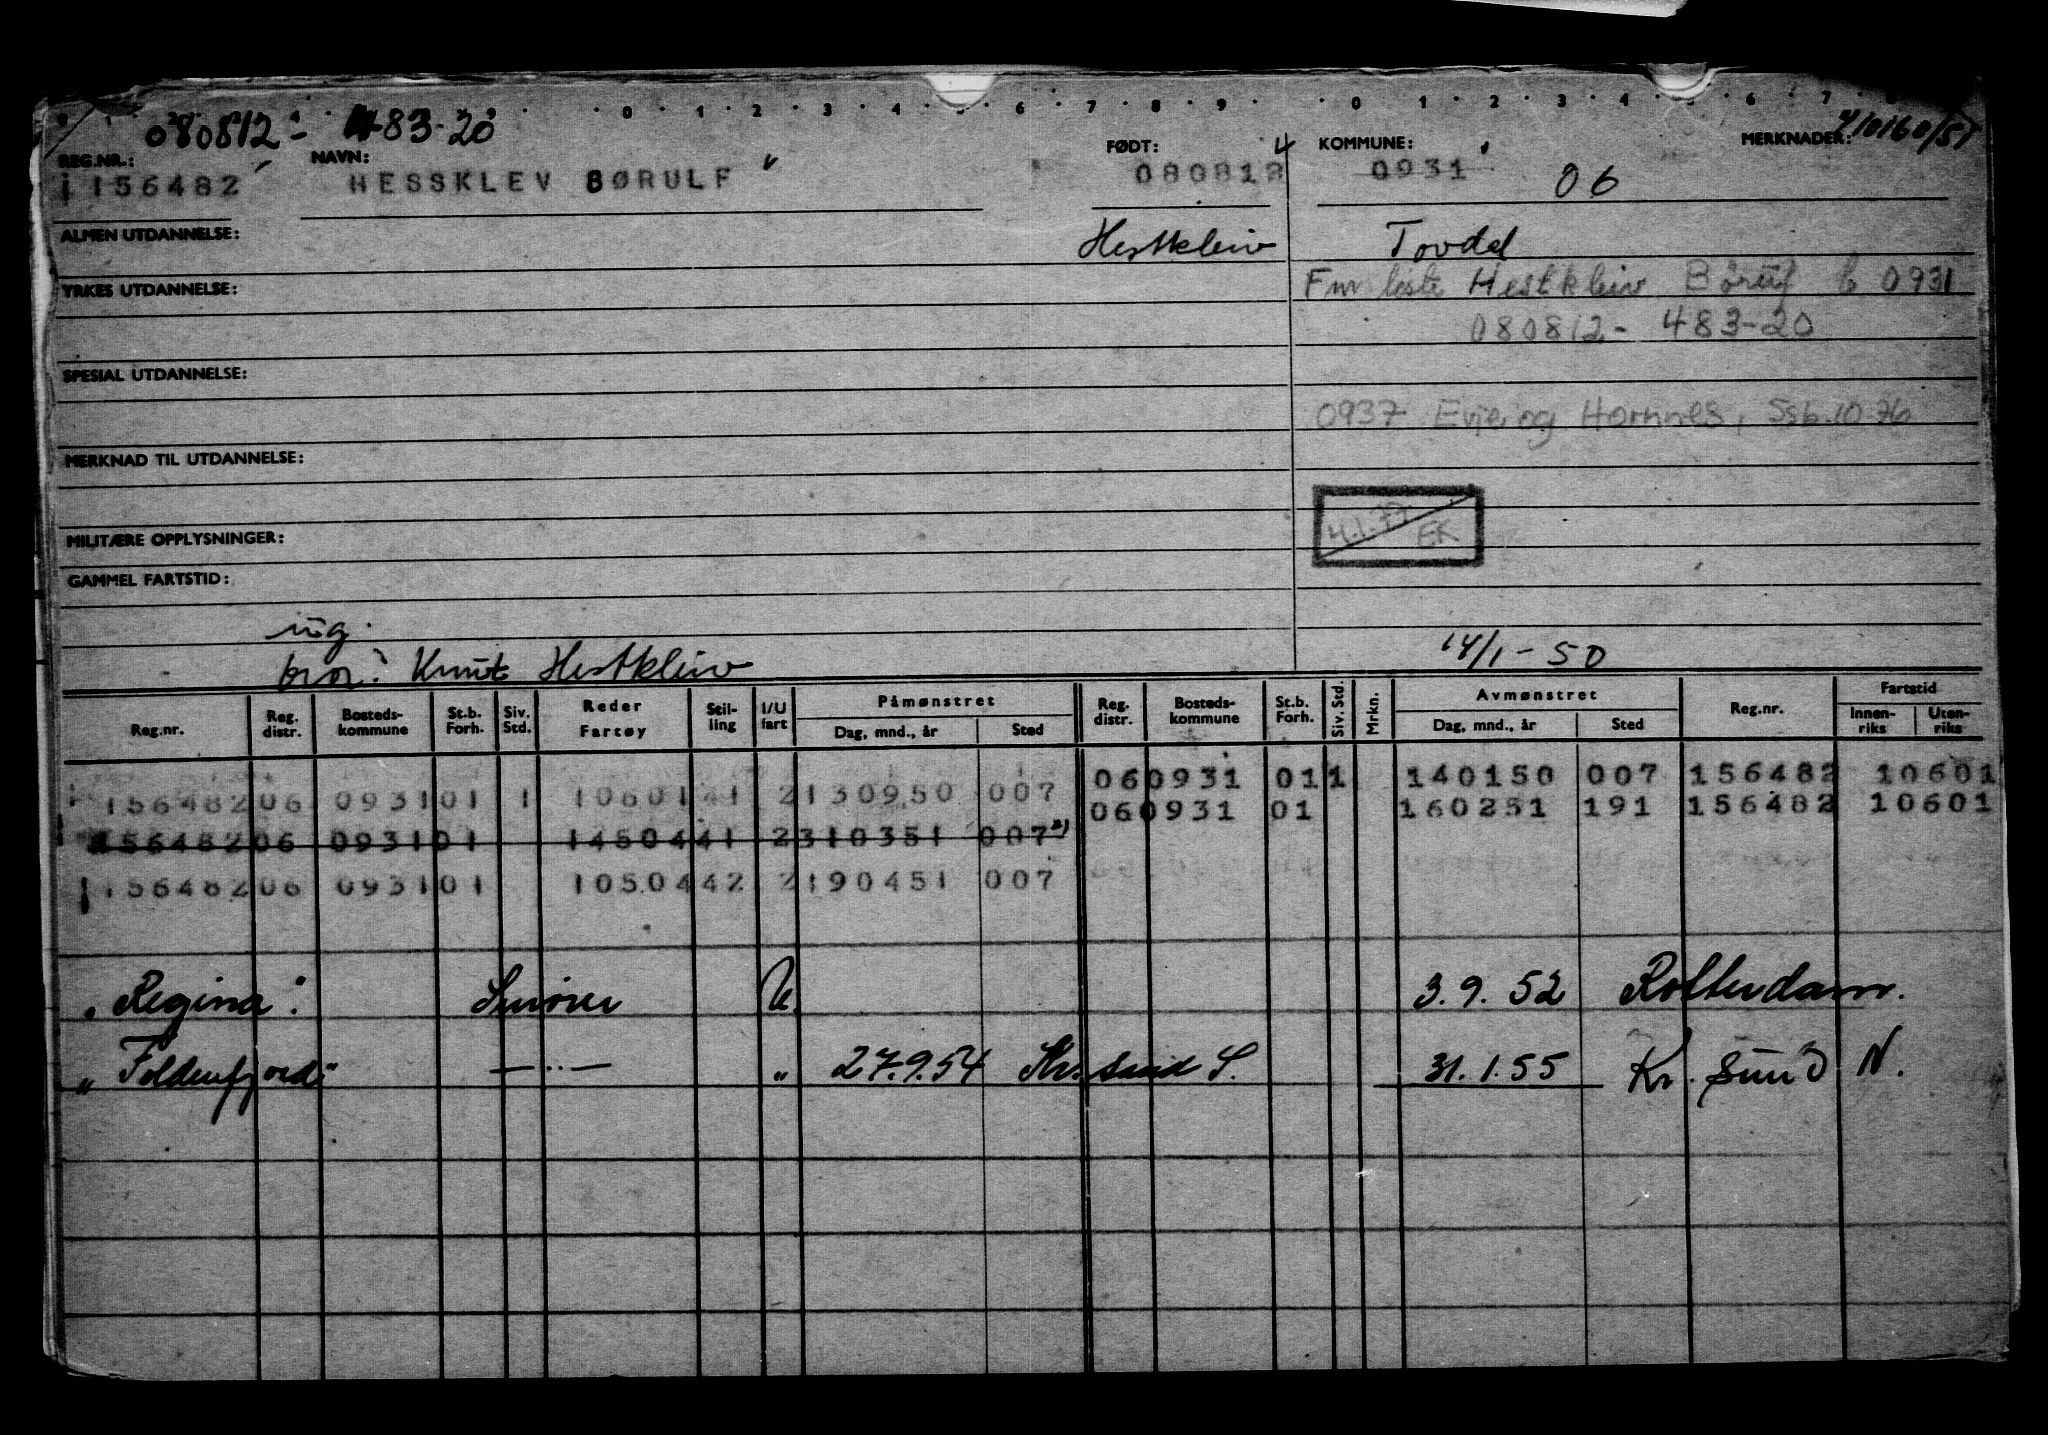 0 1 2 3 4 6 7 8 9 0 1 2 3 4 6 7
080812 - 483-20
REG.NR.: NAVN: FØDT: 4 KOMMUNE: MERKNADER: 410160/51
156482 HESSKLEV BØRULF 080812 0931 06
ALMEN UTDANNELSE: Hestkleiv Tovdal
YRKES UTDANNELSE: Fm liste Hestkleiv Børulf b 0931
080812 - 483-20
SPESIAL UTDANNELSE:
0937 Evje og Hornnes, Ssb. 10-76
MERKNAD TIL UTDANNELSE:
4.1.77 EK
MILITÆRE OPPLYSNINGER:
GAMMEL FARTSTID:
uig.
bror: Knut Hestkleiv 14/1-50
Reg.nr. Reg. distr. Bosteds-kommune St.b. Forh. Siv. Std. Reder Fartøy Stil-ling I/U fart Påmønstret Dag, mnd., år Sted Reg. distr. Bosteds-kommune St.b. Forh. Siv. Std. Mrkn. Avmønstret Dag, mnd., år Sted Reg.nr. Fartstid Innen-riks Uten-riks
06 0931 01 1 140150 007 156482 10601
156482 06 0931 01 1 10601 41 2 130950 007 06 0931 01 160251 191 156482 10601
156482 06 0931 01 14504 41 2 310351 007 x)
156482 06 0931 01 10504 42 2 190451 007
"Regina". Smører U. 3.9.52 Rotterdam.
"Foldenfjord" — " — " 27.9.54 Kr. sand S. 31.1.55 Kr. sund N.